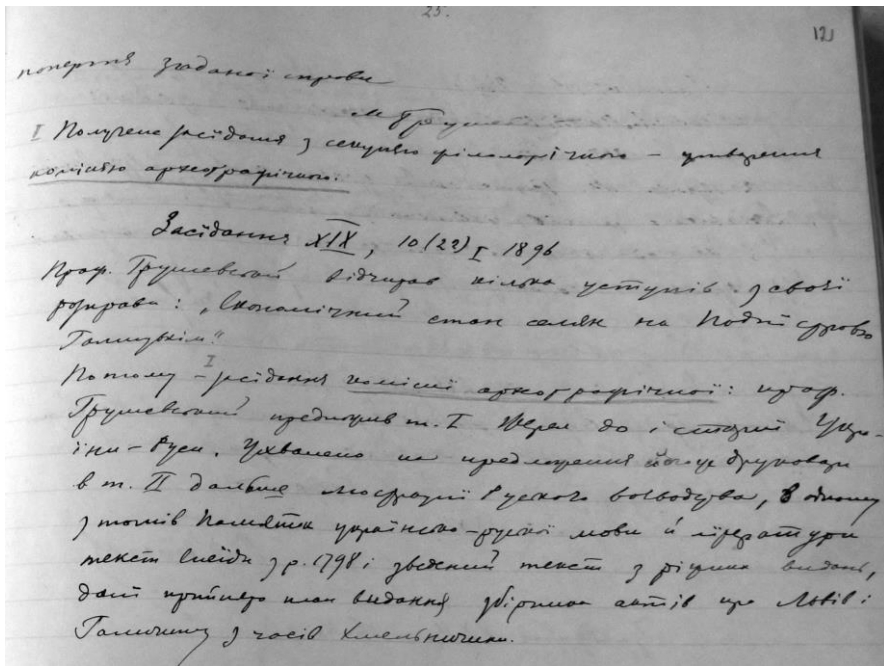 23.
12
попертя згаданої справи
М Грушев
I Получене засїданя з секциєю фільольоґічною – утворення
комісиї археоґрафічної.
Засїдання XIX, 10 (22) I 1896
Проф. Грушевский відчитав кілька уступів з своєї
розправи: „Економічний стан селян на Поднїстровю
Галицькім"
Потому – I засїдання комісиї археоґрафічної: проф.
Грушевский предложив т. I Жерел до істориї Укра-
їни-Руси. Ухвалено на предложення його друковати
в т. II дальше люстрациї Руского воєводства, в одному
з томів Памяток українсько-руської мови й лїтератури
текст Енеїди з р. 1798 і зведений текст з ріжних видань,
далї прийнято план видання збірника актів про Львів і
Галичину з часів Хмельничини.